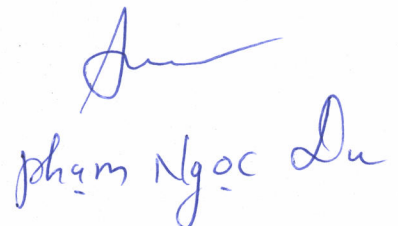 Phạm Ngọc Du